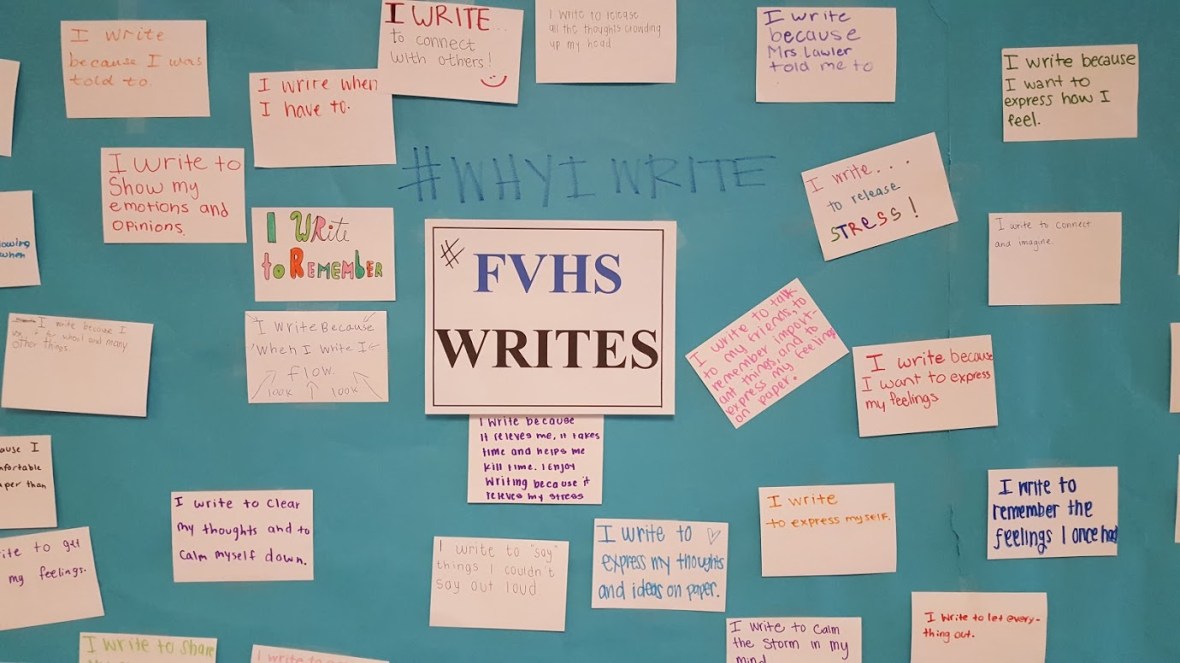 I write
because I was
told to.
I write when
I have to.
I WRITE...
to connect
with others!
I write to release
all the thoughts crowding
up my head
I write
because
Mrs Lawler
told me to
I write because
I want to
express how I
feel.
#WHYIWRITE
I write to
Show my
emotions and
opinions.
I WRite
to REMEMBER
I write...
to release
STRESS!
I write to connect
and imagine.
owing
when
# FVHS
WRITES
I write because I
school and many
other things.
I write Because
"When I write I
flow.
100K 100K
I write to talk
to my friends, to
remember import-
ant things, and to
express my feelings
on paper.
I write because
I want to express
my feelings
I write because
it releves me, it takes
time and helps me
kill time. I enjoy
writing because it
releves my stress
ause I
mfortable
aper than
I write to clear
my thoughts and to
calm myself down.
I write
to express myself.
I write to
remember the
feelings I once had
ite to get
my feelings.
I write to "say"
things I couldn't
say out loud
I write to
express my thoughts
and ideas on paper.
I write to calm
the storm in my
mind
I write to let every-
thing out.
I write to share
I write to